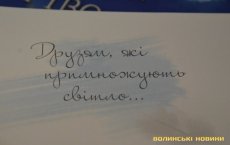 Друзям, які
примножують
світло...
ВОЛИНСЬКІ НОВИНИ